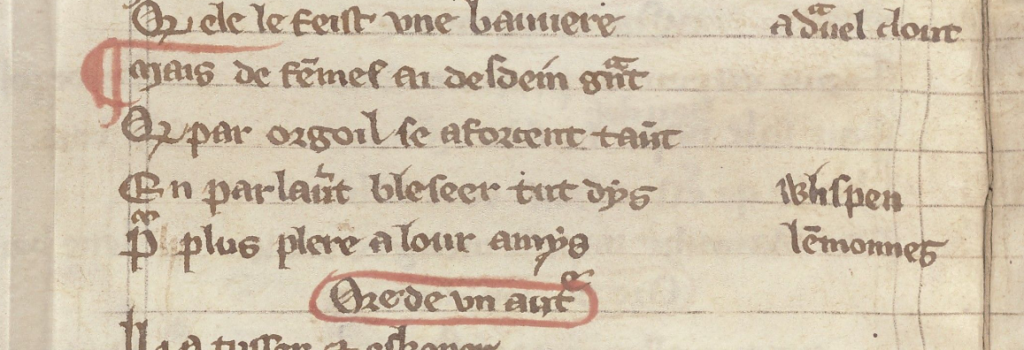 Qe ele le feist vne baniere a duel clout
Mais de femes ai desdein gnt
Qe par orgoil se aforcent taunt
En parlaunt bleseer tut dys whspen
P plus plere a lour amys lemonnes
Ore de vn aut
Il a tusser